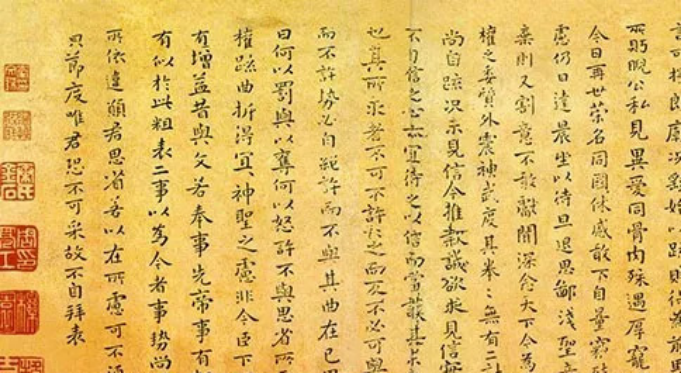 言可擇郎廟況繇始以疏賤得為前恩
所盱睨公私見異愛同骨肉殊遇厚寵
今日再世榮名同國休慼敢不自量竊致
慮仍日達晨坐以待旦退思鄙淺聖意
棄則又割意不敢獻聞深念天下今為
權之委質外震神武度其拳々無有二計
尚自疏況未見信今推款誠欲求見信實
不自信之心亦宜待之以信而當護其未
也其所求者不可不許許之而反不必可與
而不許勢必自絕許而不與其曲在己
曰何以罰與以奪何以怒許不與思省所
權疏曲折得宜神聖之慮非今臣下
有增益昔與文若奉事先帝事有
有似於此粗表二事以為今者事勢尚
所依違願君思省若以在所慮可不須
節度唯君恐不可采故不自拜表